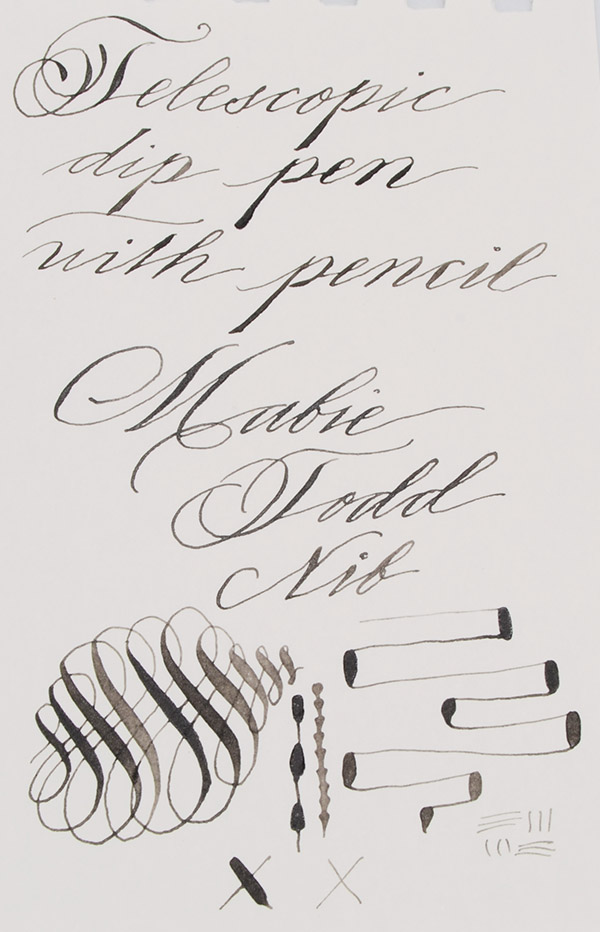 Telescopic
dip pen
with pencil
Mabie
Todd
Nib